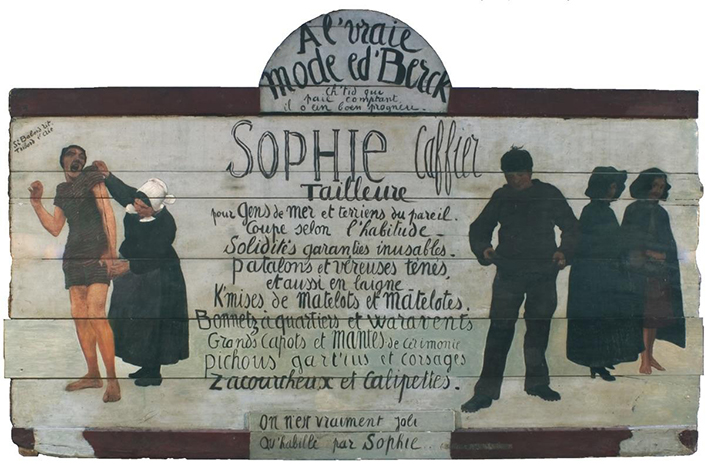 A l'vraie
mode ed'Berck
Ch'tid qui
paie comptant
il o ein boen progneu.
SOPHIE Caffier
Tailleure
pour Gens de mer et terriens du pareil.
Coupe selon l'habitude
Solidités garanties inusables.
Patalons et véreuses tenés
et aussi en laigne
K'mises de Matelots et Matelotes.
Bonnetzàquartiers et waravents
Grands Capots et MANTES de Cérémonie
Pichous gart'ius et corsages
Zacourcheux et Calipettes.
On n'est vraiment joli
Qu'habillé par Sophie...